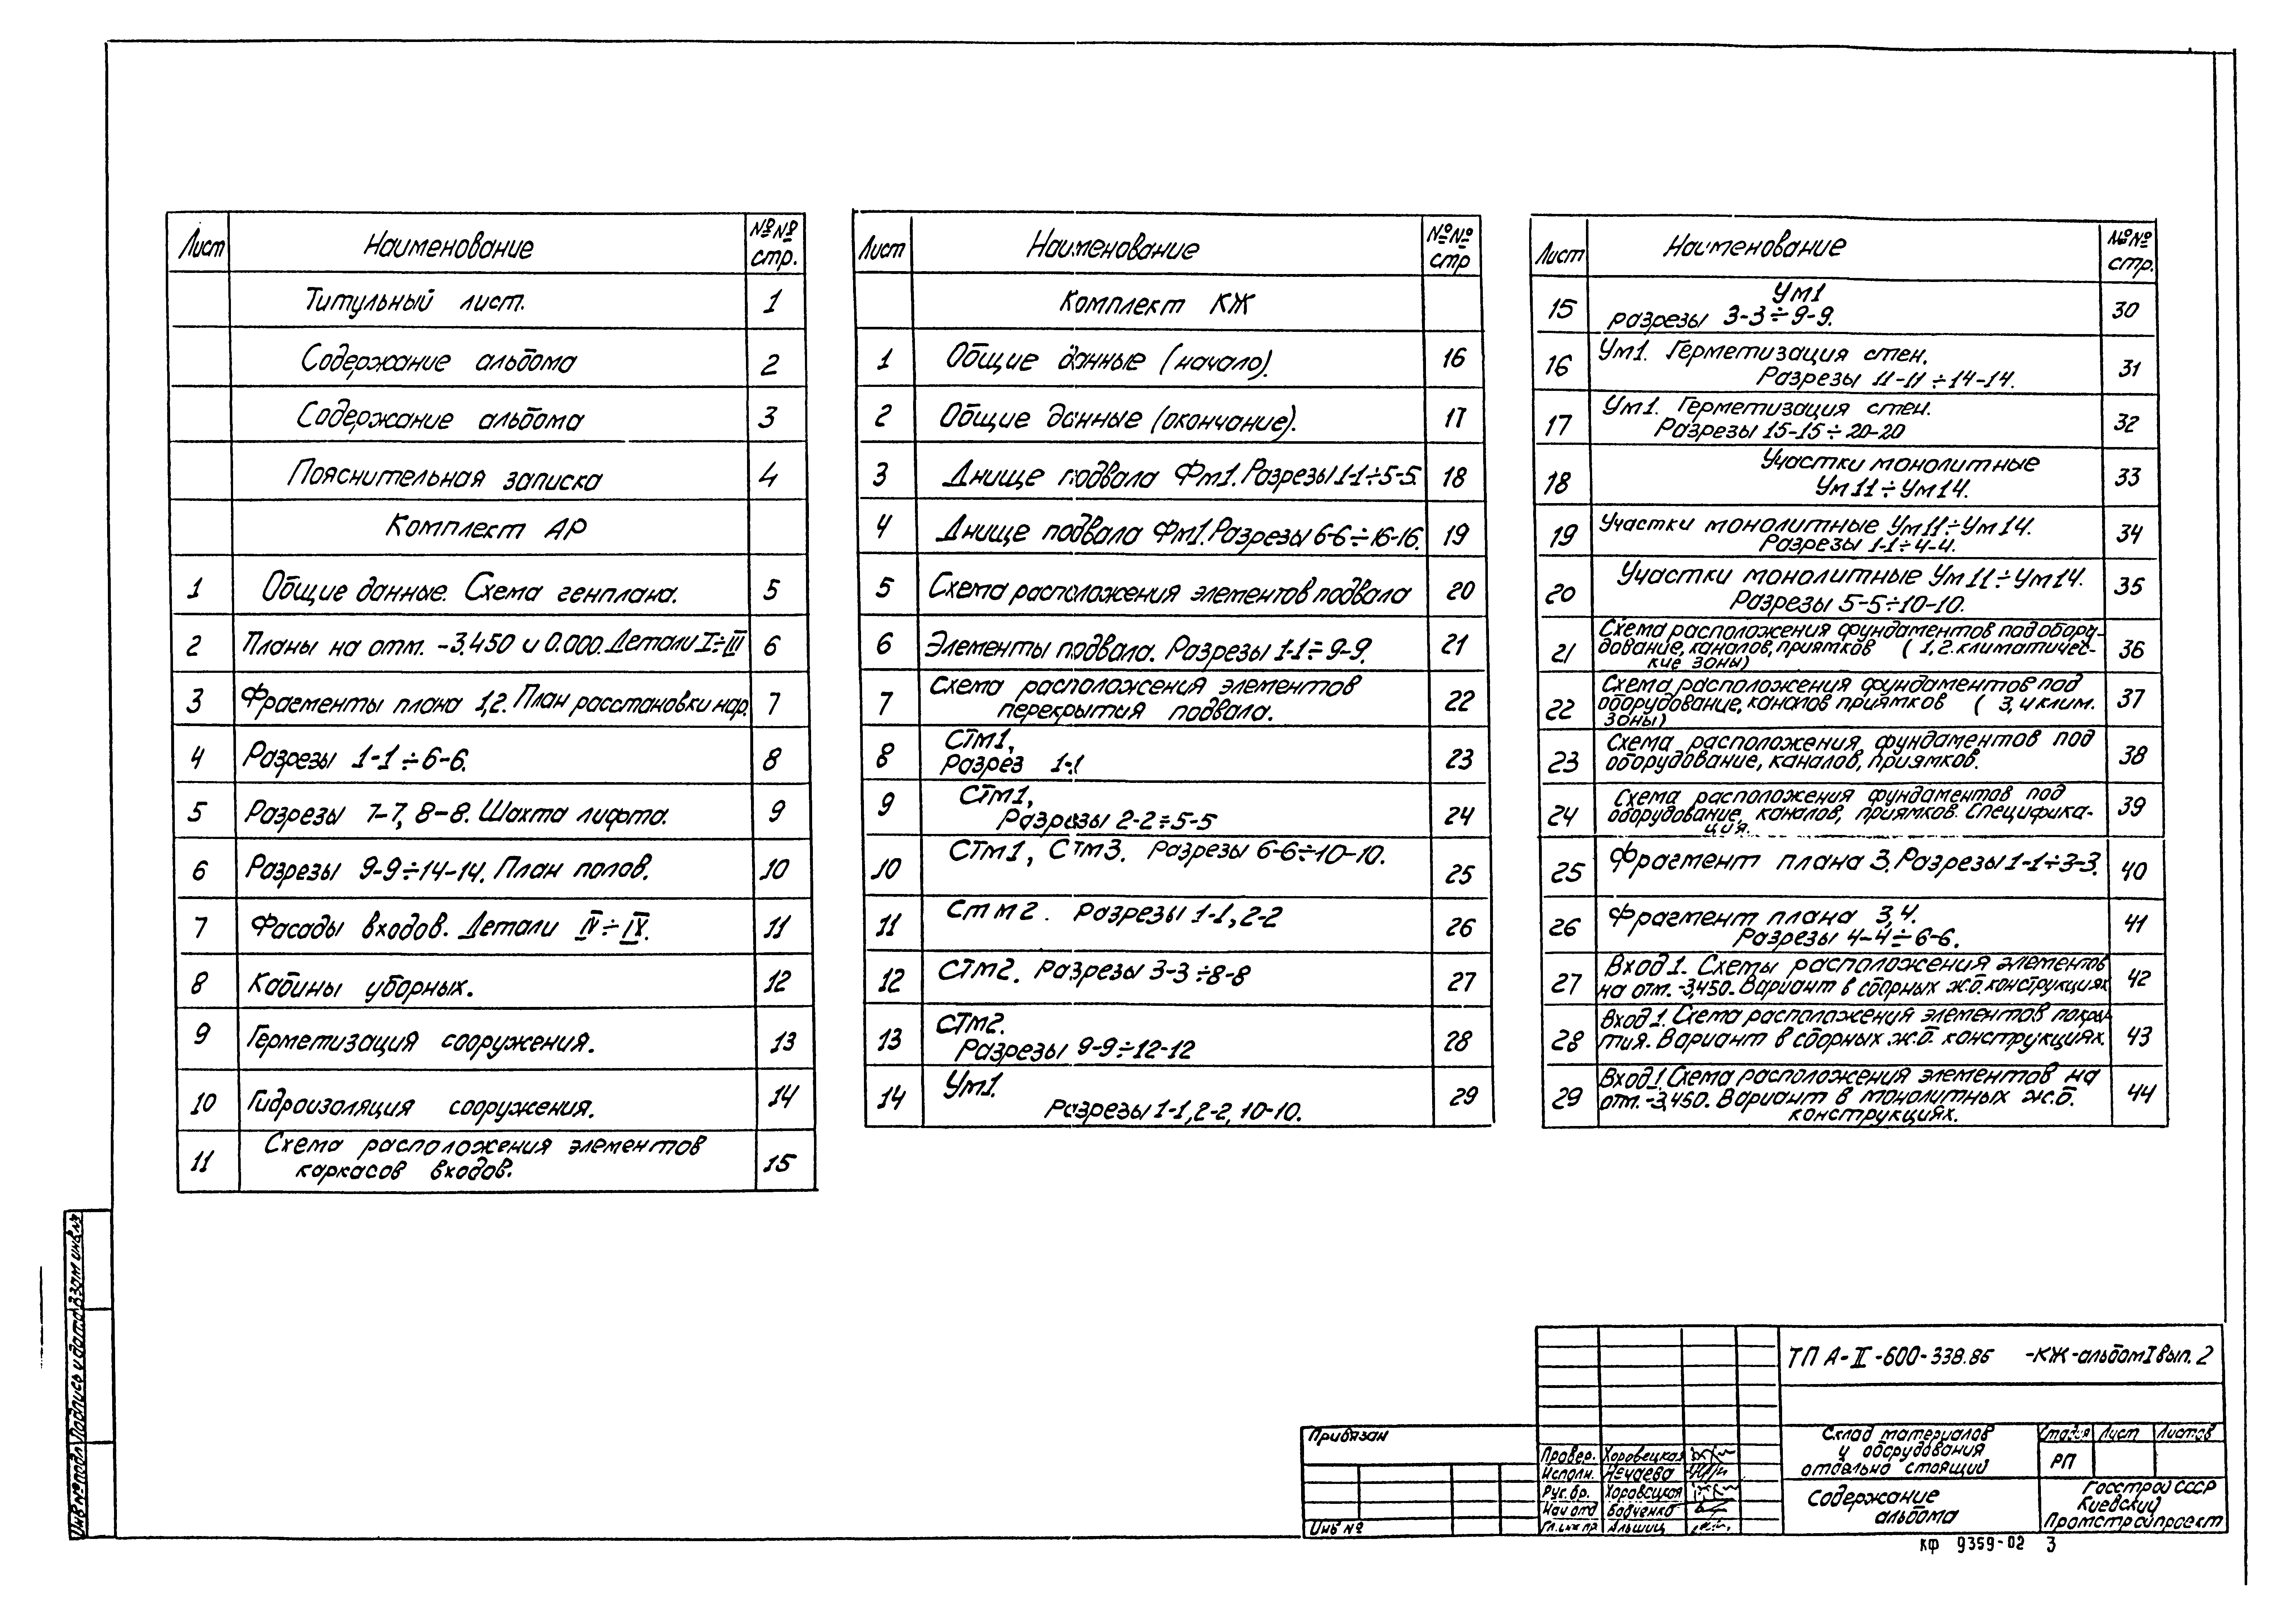 Лист Наименование №№ стр.
Титульный лист. 1
Содержание альбома 2
Содержание альбома 3
Пояснительная записка 4
Комплект АР
1 Общие данные. Схема генплана. 5
2 Планы на отм. -3.450 и 0.000. Детали I÷III 6
3 Фрагменты плана 1,2. План расстановки нар. 7
4 Разрезы 1-1÷6-6. 8
5 Разрезы 7-7, 8-8. Шахта лифта. 9
6 Разрезы 9-9÷14-14. План полов. 10
7 Фасады входов. Детали IV÷IX. 11
8 Кабины уборных. 12
9 Герметизация сооружения. 13
10 Гидроизоляция сооружения. 14
11 Схема расположения элементов
каркасов входов. 15
Лист Наименование №№ стр
Комплект КЖ
1 Общие данные (начало). 16
2 Общие данные (окончание). 17
3 Днище подвала Фм1. Разрезы 1-1÷5-5. 18
4 Днище подвала Фм1. Разрезы 6-6÷16-16. 19
5 Схема расположения элементов подвала 20
6 Элементы подвала. Разрезы 1-1÷9-9. 21
7 Схема расположения элементов
перекрытия подвала. 22
8 Стм1,
Разрез 1-1 23
9 Стм1,
Разрезы 2-2÷5-5 24
10 Стм1, Стм3. Разрезы 6-6÷10-10. 25
11 Стм2. Разрезы 1-1, 2-2 26
12 Стм2. Разрезы 3-3÷8-8 27
13 Стм2.
Разрезы 9-9÷12-12 28
14 Ум1.
Разрезы 1-1, 2-2, 10-10. 29
Лист Наименование №№ стр.
15 Ум1
разрезы 3-3÷9-9. 30
16 Ум1. Герметизация стен.
Разрезы 11-11÷14-14. 31
17 Ум1. Герметизация стен.
Разрезы 15-15÷20-20 32
18 Участки монолитные
Ум11÷Ум14. 33
19 Участки монолитные Ум11÷Ум14.
Разрезы 1-1÷4-4. 34
20 Участки монолитные Ум11÷Ум14.
Разрезы 5-5÷10-10. 35
21 Схема расположения фундаментов под обору-
дование, каналов, приямков (1, 2. климатичес-
кие зоны) 36
22 Схема расположения фундаментов под
оборудование, каналов приямков (3, 4 клим.
зоны) 37
23 Схема расположения фундаментов под
оборудование, каналов, приямков. 38
24 Схема расположения фундаментов под
оборудование, каналов, приямков. Специфика-
ция. 39
25 Фрагмент плана 3. Разрезы 1-1÷3-3. 40
26 Фрагмент плана 3,4.
Разрезы 4-4÷6-6. 41
27 Вход 1. Схемы расположения элементов
на отм. -3,450. Вариант в сборных ж.б. конструкциях 42
28 Вход 1. Схема расположения элементов покры-
тия. Вариант в сборных ж.б. конструкциях. 43
29 Вход 1. Схема расположения элементов на
отм. -3,450. Вариант в монолитных ж.б.
конструкциях. 44
Инв № подл Подпись и дата Взам инв №
ТП А-II-600-338.85 -КЖ-альбом I вып. 2
Привязан
Инв №
Провер. Хоровецкая
Исполн. Нечаева
Рук. бр. Хоровецкая
Нач отд Бабченко
Гл. инж пр Альшиц
Склад материалов
и оборудования
отдельно стоящий
Стадия Лист Листов
РП
Содержание
альбома
Госстрой СССР
Киевский
Промстройпроект
кф 9359-02 3